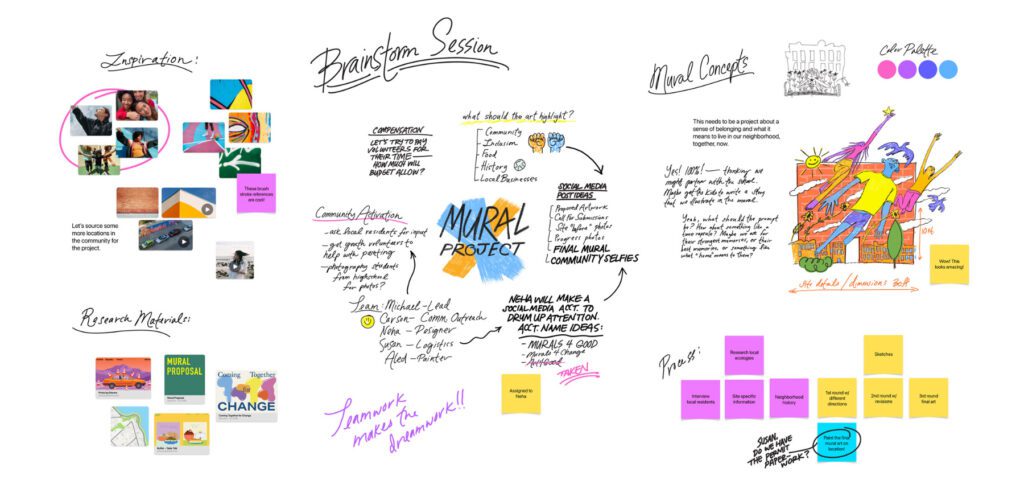 Inspiration:
These brush
stroke references
are cool!
Let's source some
more locations in
the community for
the project.
Research Materials:
MURAL
PROPOSAL
Coming Together
for
CHANGE
Coming Together for Change
Brainstorm Session
what should the art highlight?
- Community
- Inclusion
- Food
- History
- Local Businesses
COMPENSATION
LET'S TRY TO PAY
VOLUNTEERS FOR
THEIR TIME —
HOW MUCH WILL
BUDGET ALLOW?
SOCIAL MEDIA
POST IDEAS
Proposed Artwork
Call For Submissions
Site "before" photos
Progress photos
FINAL MURAL
COMMUNITY SELFIES
Community Activation
- ask local residents for input
- get youth volunteers to
help with painting
- photography students
from highschool
for photos?
MURAL
PROJECT
Team: Michael - Lead
Carson - Comm. Outreach
Neha - Designer
Susan - Logistics
Aled - Painter
NEHA WILL MAKE A
SOCIAL MEDIA ACCT. TO
DRUM UP ATTENTION.
ACCT. NAME IDEAS:
- MURALS 4 GOOD
- Murals 4 Change
- Art4Good
TAKEN
Assigned to
Neha
Teamwork
makes the
dreamwork!!
Mural Concepts
Color Palette
This needs to be a project about a
sense of belonging and what it
means to live in our neighborhood,
together, now.
Yes! 100%! — thinking we
might partner with the school.
Maybe get the kids to write a story
that we illustrate in the mural.
Yeah, what should the prompt
be? How about something like
time capsule? Maybe we ask for
their strongest memories, or their
best memories, or something like
what "home" means to them?
10ft
Site details / dimensions 30ft
Wow! This
looks amazing!
Process:
Research local
ecologies
Sketches
Interview
local residents
Site specific
information
Neighborhood
history
1st round w/
different
directions
2nd round w/
revisions
3rd round
final art
SUSAN,
DO WE HAVE
THE PERMIT
PAPER-
WORK?
Paint the final
mural art on
location!